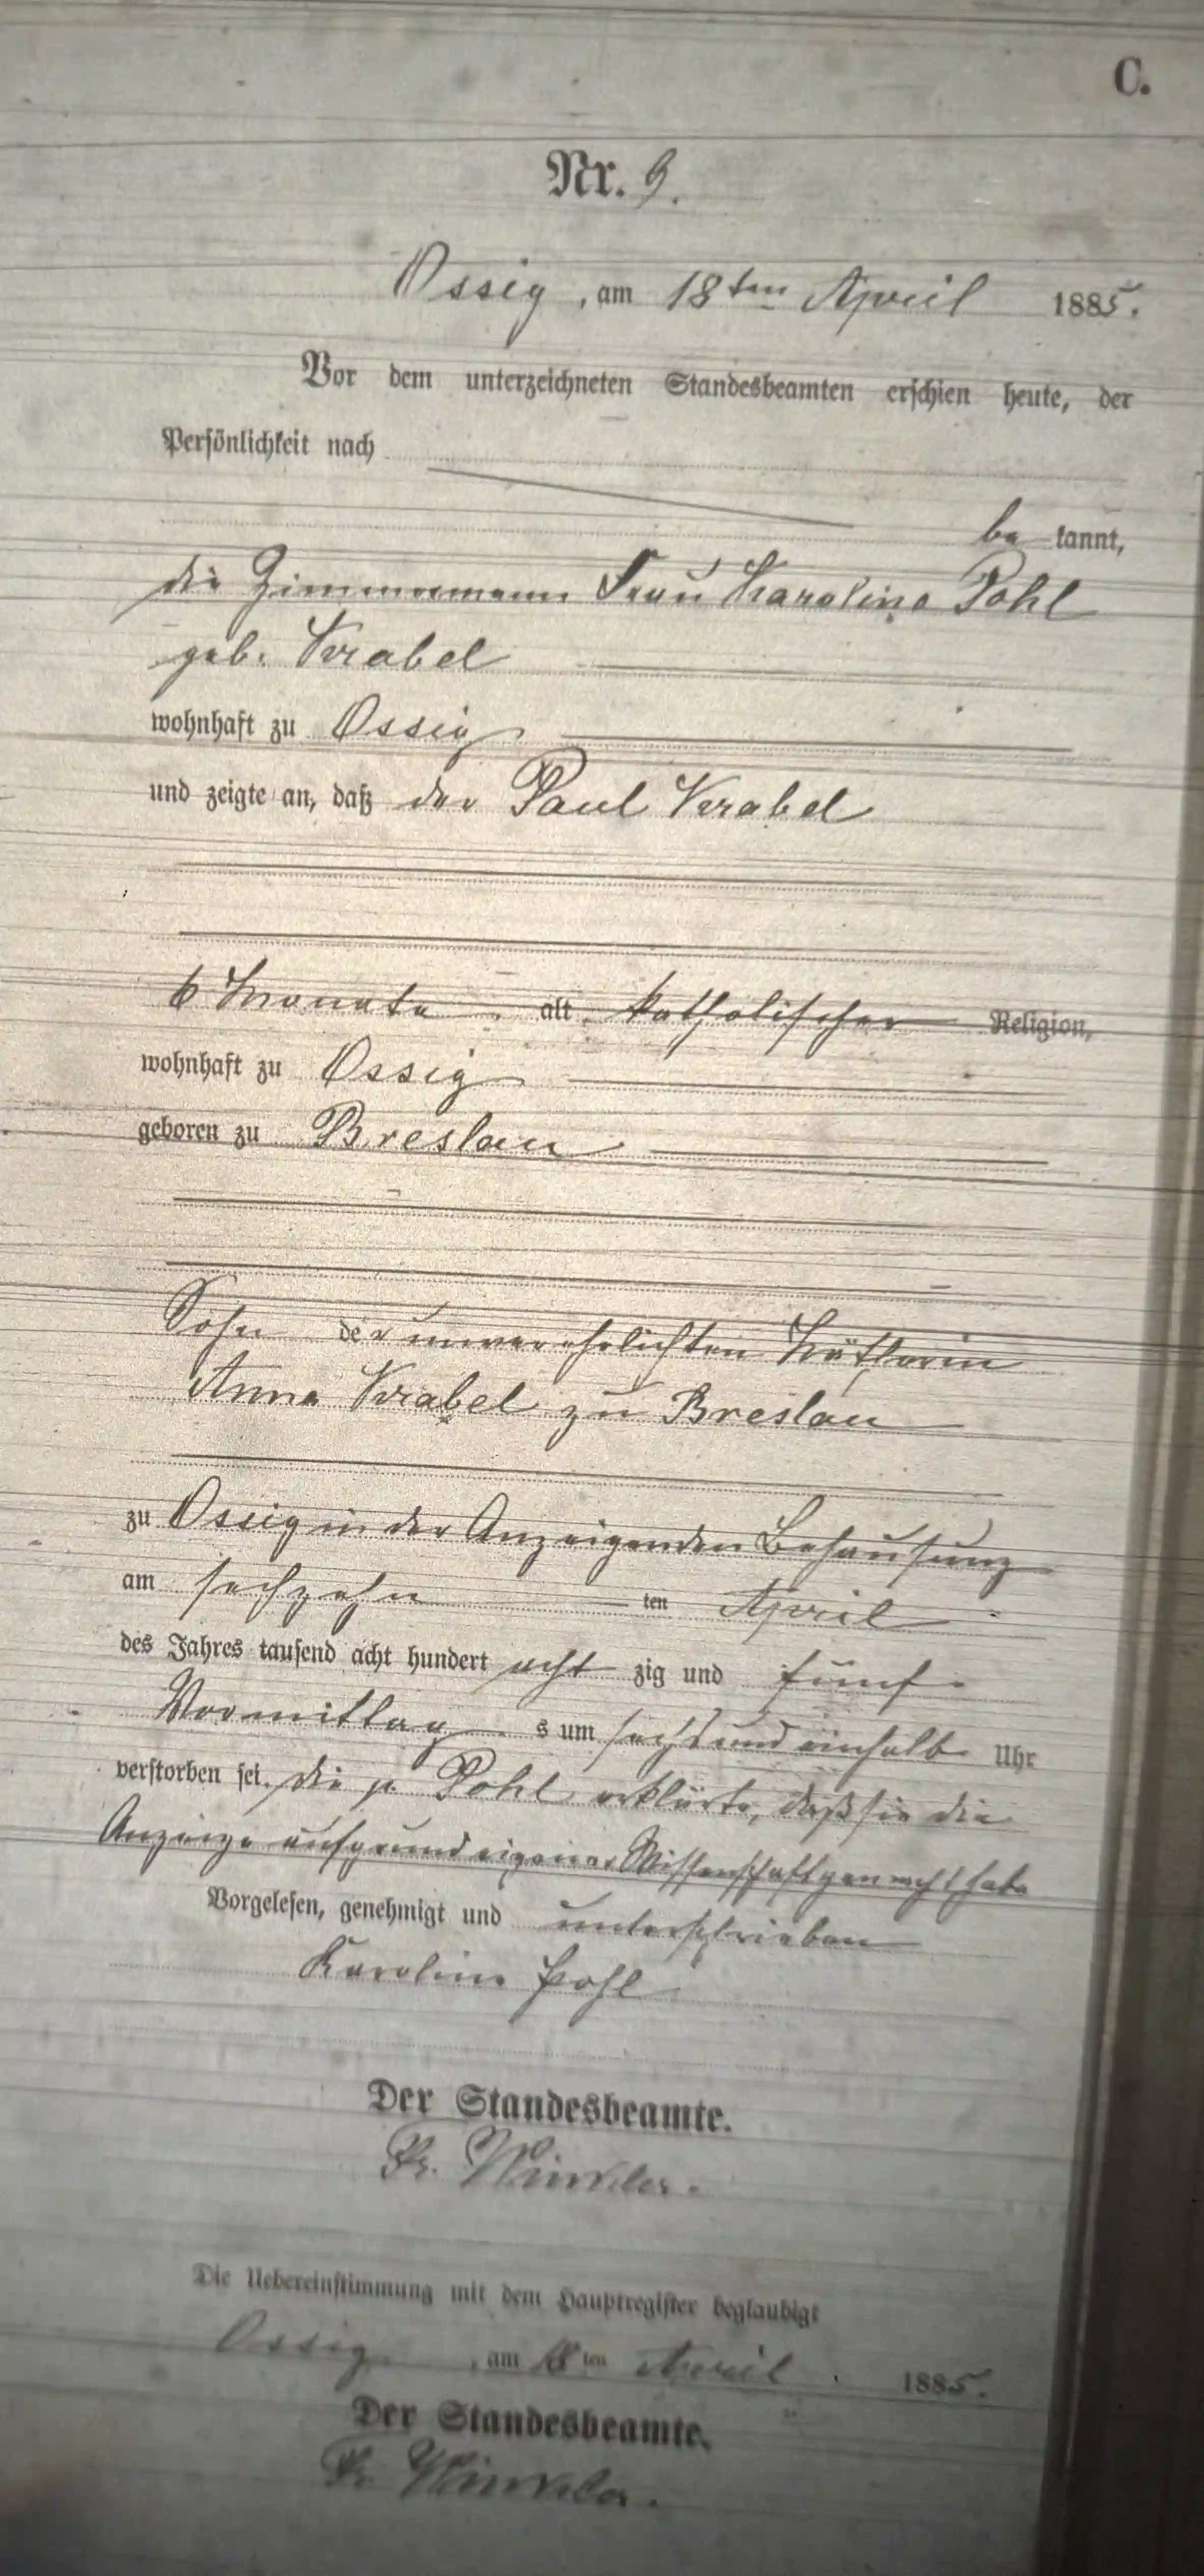 C.
Nr. 9.
Ossig, am 18ten April 1885.
Vor dem unterzeichneten Standesbeamten erschien heute, der
Persönlichkeit nach
be kannt,
die Zimmermann Frau Karoline Pohl
geb. Krabel
wohnhaft zu Ossig
und zeigte an, daß der Paul Krabel
6 Monate alt, katholischer Religion,
wohnhaft zu Ossig
geboren zu Breslau
Sohn der unverehelichten
Anna Krabel zu Breslau
zu Ossig in der Anzeigenden Behausung
am sechzehn ten April
des Jahres tausend acht hundert acht zig und fünf
Vormittag s um sechs und einhalb Uhr
verstorben sei. Die p. Pohl erklärte, daß sie die
Anzeige aufgrund eigener Wissenschaft gemacht habe
Vorgelesen, genehmigt und unterschrieben
Karoline Pohl
Der Standesbeamte.
Fr. Winkler.
Die Uebereinstimmung mit dem Hauptregister beglaubigt
Ossig, am 18ten April 1885.
Der Standesbeamte.
Fr. Winkler.